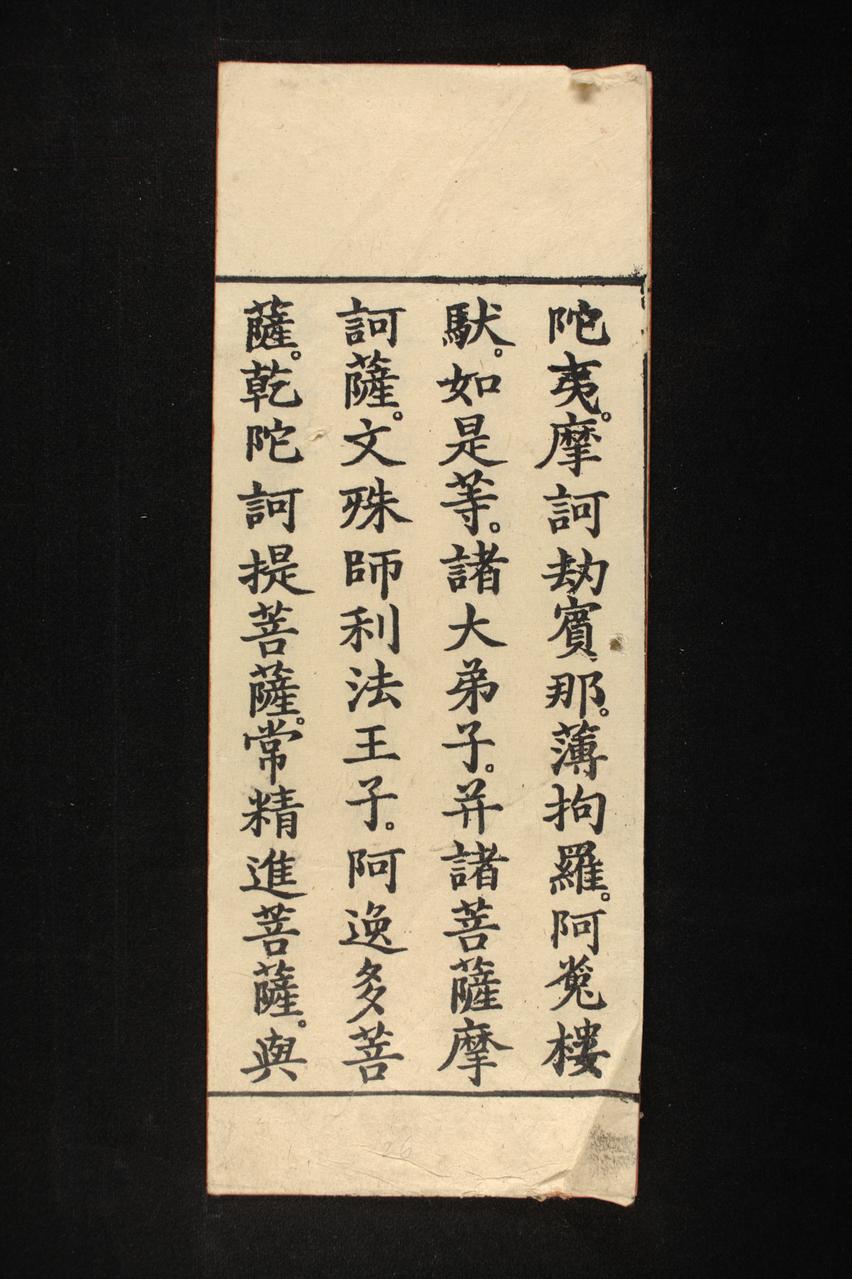 陀夷。摩訶劫賓那。薄拘羅。阿㝹樓
馱。如是等。諸大弟子。并諸菩薩摩
訶薩。文殊師利法王子。阿逸多菩
薩。乾陀訶提菩薩。常精進菩薩。與
26